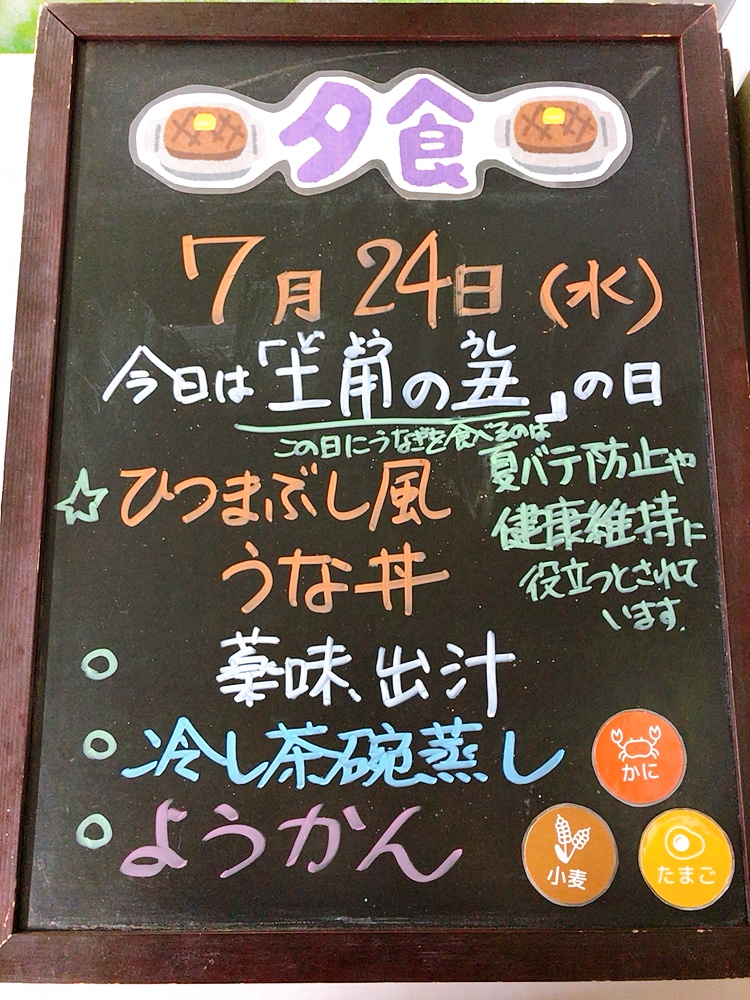 夕食
7月24日(水)
今日は「土用の丑」の日
どよう うし
この日にうなぎを食べるのは
夏バテ防止や
健康維持に
役立つとされて
います。
☆ひつまぶし風
うな丼
○ 薬味、出汁
○ 冷し茶碗蒸し
○ ようかん
かに
小麦
たまご